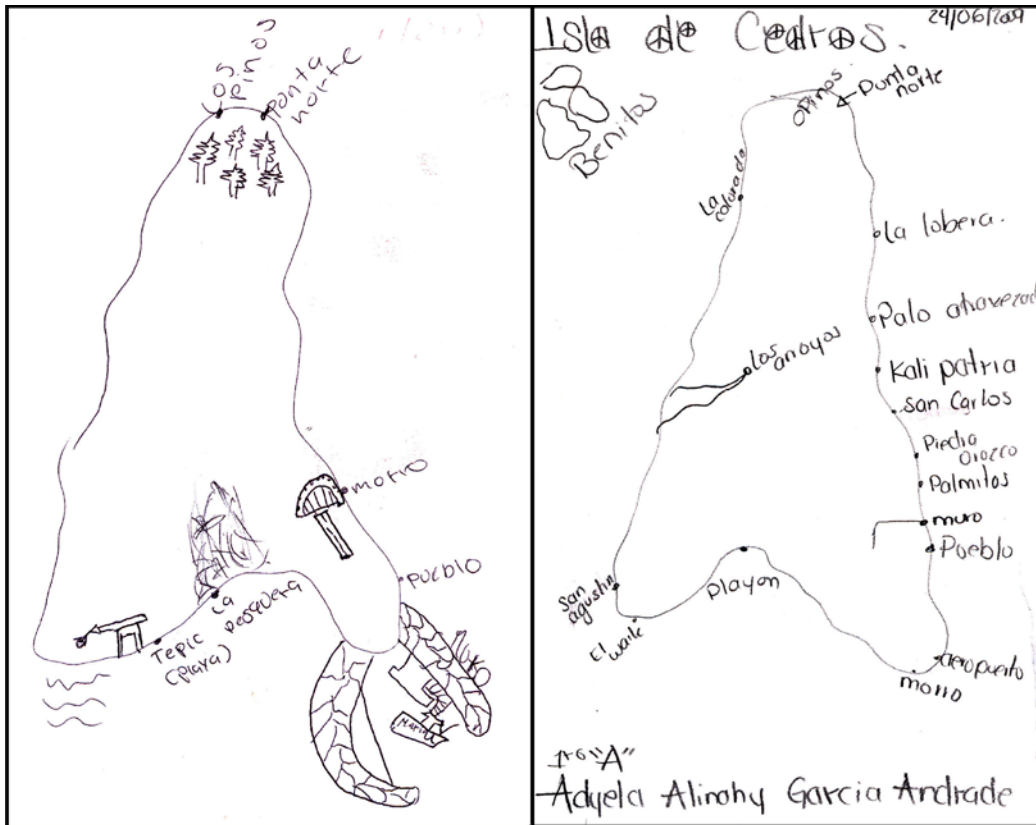 Los
Pinos
Punta
norte
morro
Pueblo
La
Pesquera
Tepic
(playa)
Muro
24/06/2009
Isla de Cedros.
Benitos
Pinos
Punta
norte
La
colorada
La lobera.
Palo atravezad
los arroyos
Kali patria
San Carlos
Piedra
Orozco
Palmitos
muro
Pueblo
San
agustin
El waile
Playon
aeropuerto
morro
1ro "A"
Adyela Alinahy Garcia Andrade